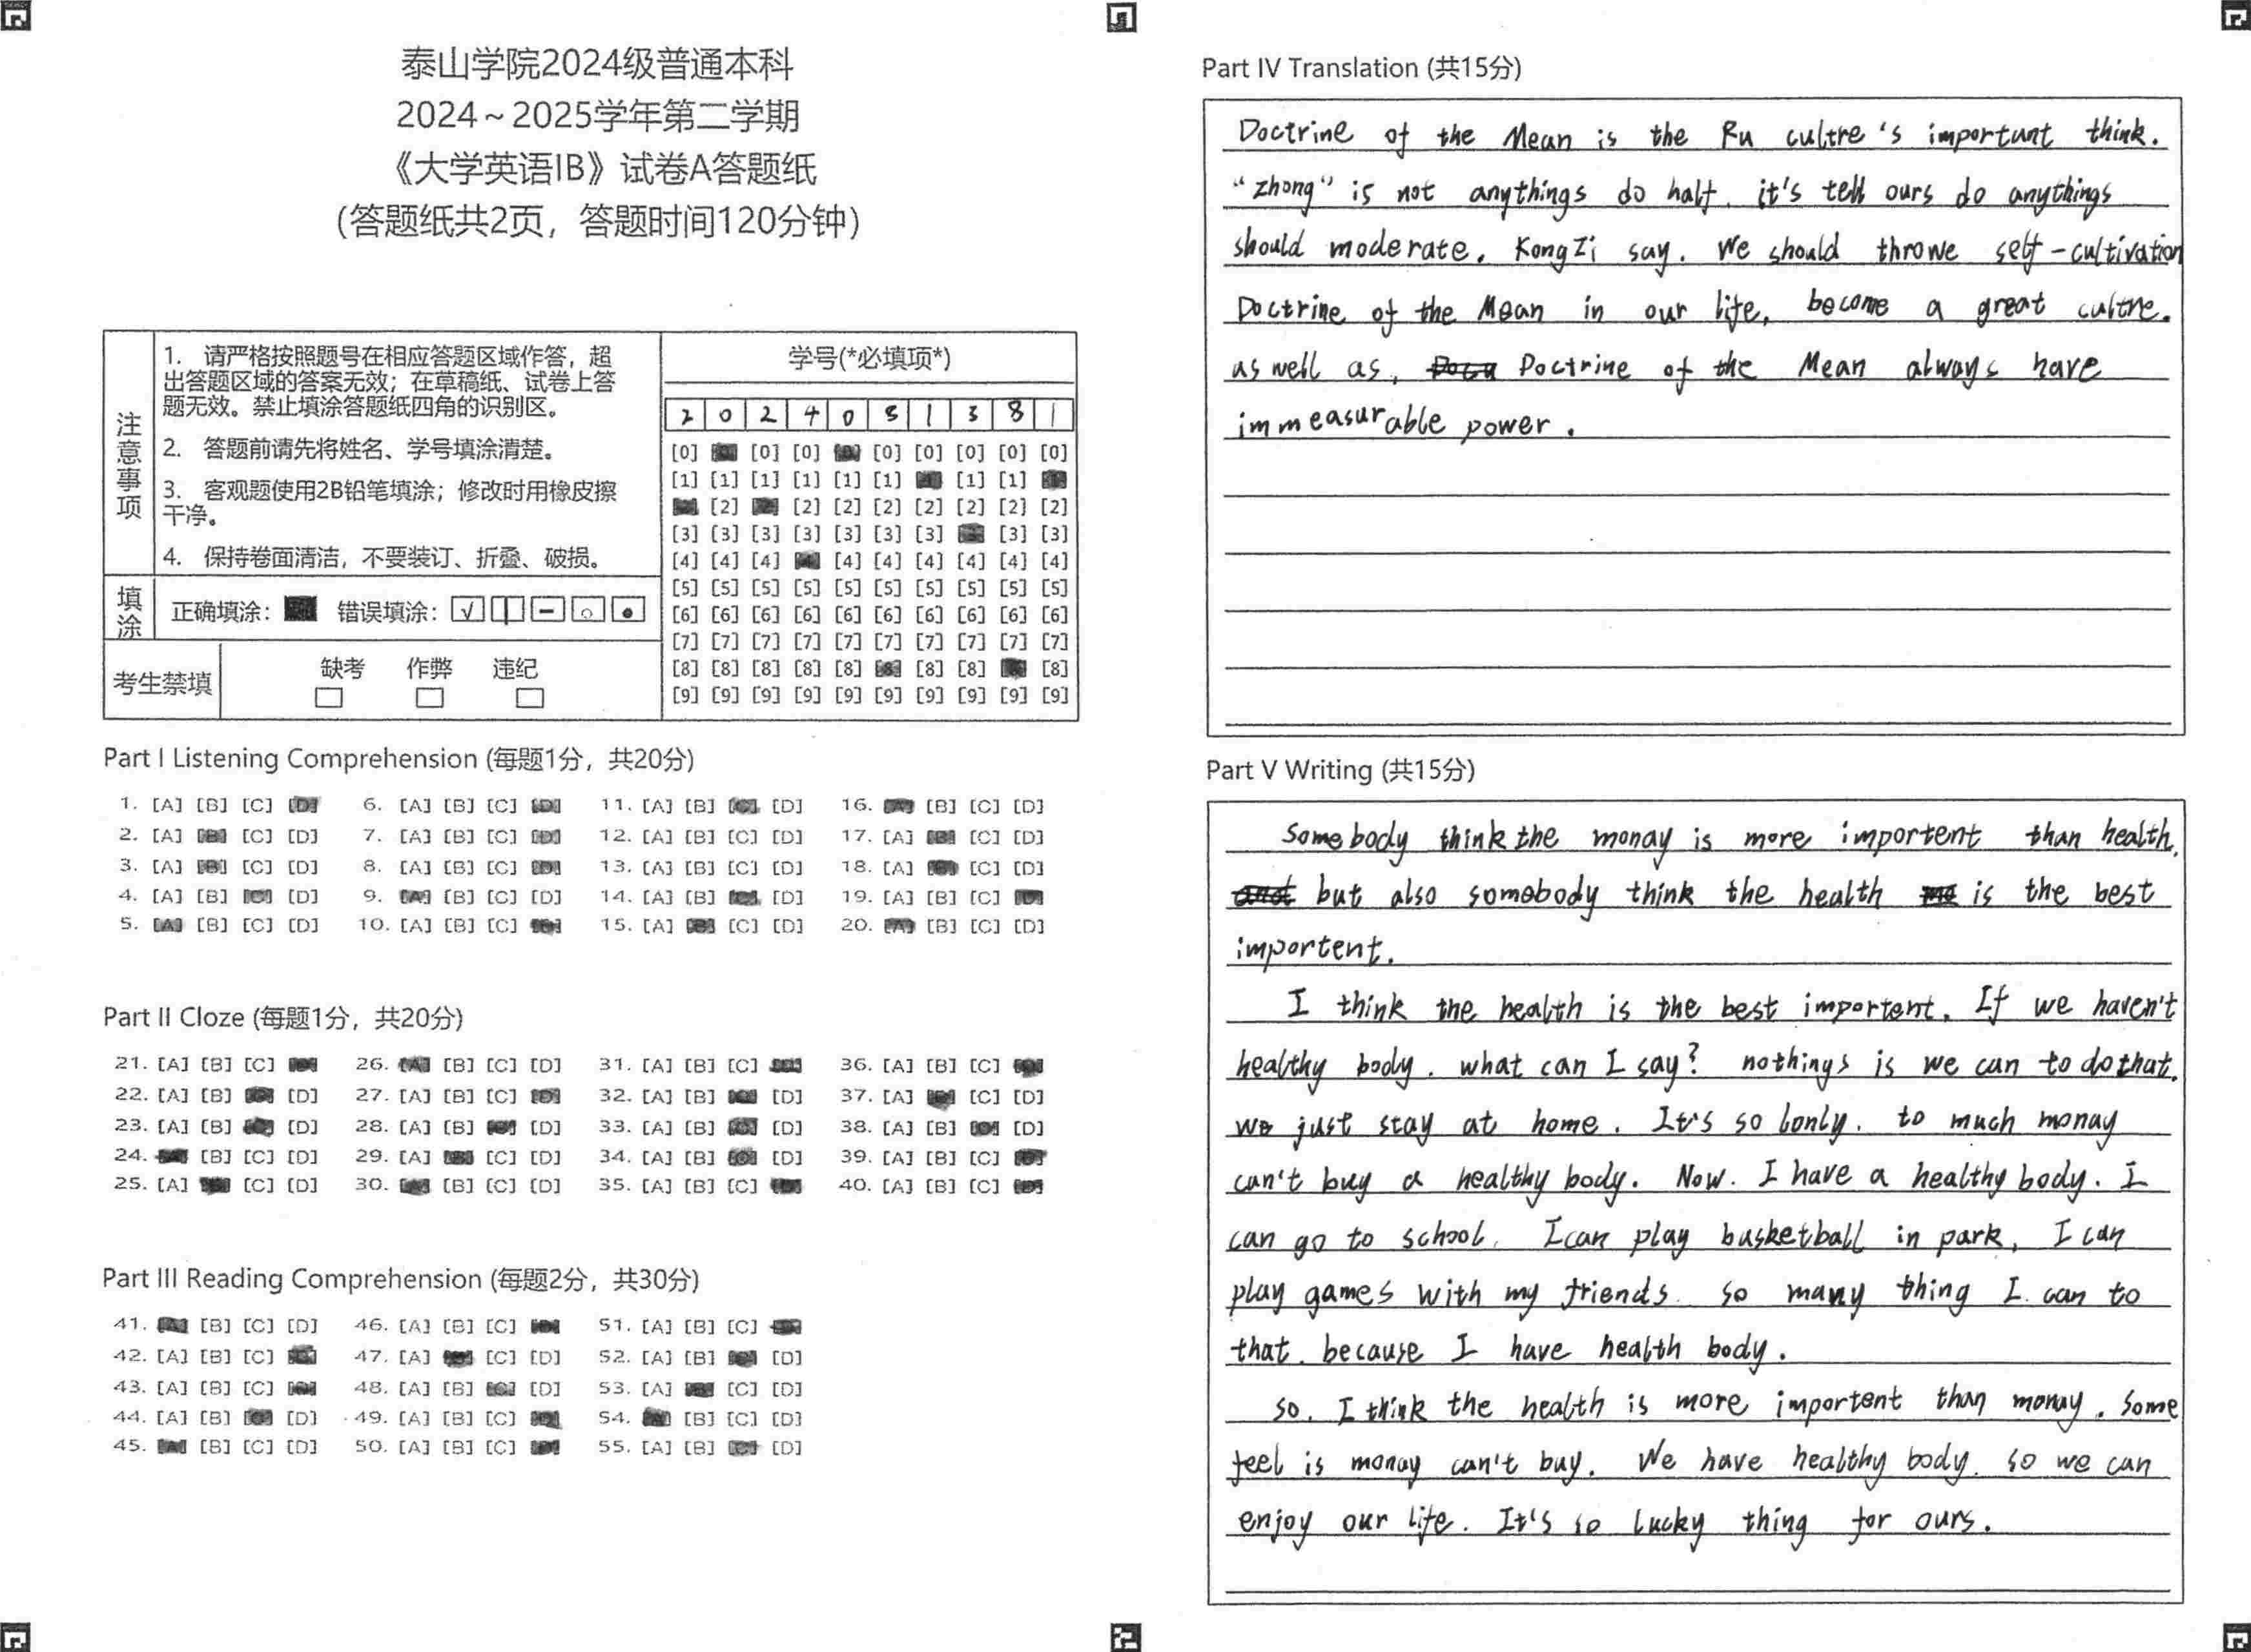 泰山学院2024级普通本科
2024～2025学年第二学期
《大学英语IB》试卷A答题纸
（答题纸共2页，答题时间120分钟）
注意事项
1. 请严格按照题号在相应答题区域作答，超
出答题区域的答案无效；在草稿纸、试卷上答
题无效。禁止填涂答题纸四角的识别区。
2. 答题前请先将姓名、学号填涂清楚。
3. 客观题使用2B铅笔填涂；修改时用橡皮擦
干净。
4. 保持卷面清洁，不要装订、折叠、破损。
填涂
正确填涂： 错误填涂：
考生禁填
缺考 作弊 违纪
学号(*必填项*)
2 0 2 4 0 8 1 3 8 1
[0] [0] [0] [0] [0] [0] [0] [0]
[1] [1] [1] [1] [1] [1] [1] [1]
[2] [2] [2] [2] [2] [2] [2] [2]
[3] [3] [3] [3] [3] [3] [3] [3] [3]
[4] [4] [4] [4] [4] [4] [4] [4] [4]
[5] [5] [5] [5] [5] [5] [5] [5] [5] [5]
[6] [6] [6] [6] [6] [6] [6] [6] [6] [6]
[7] [7] [7] [7] [7] [7] [7] [7] [7] [7]
[8] [8] [8] [8] [8] [8] [8] [8] [8]
[9] [9] [9] [9] [9] [9] [9] [9] [9] [9]
Part I Listening Comprehension (每题1分，共20分)
1. [A] [B] [C] [D] 6. [A] [B] [C] [D] 11. [A] [B] [C] [D] 16. [A] [B] [C] [D]
2. [A] [B] [C] [D] 7. [A] [B] [C] [D] 12. [A] [B] [C] [D] 17. [A] [B] [C] [D]
3. [A] [B] [C] [D] 8. [A] [B] [C] [D] 13. [A] [B] [C] [D] 18. [A] [B] [C] [D]
4. [A] [B] [C] [D] 9. [A] [B] [C] [D] 14. [A] [B] [C] [D] 19. [A] [B] [C] [D]
5. [A] [B] [C] [D] 10. [A] [B] [C] [D] 15. [A] [B] [C] [D] 20. [A] [B] [C] [D]
Part II Cloze (每题1分，共20分)
21. [A] [B] [C] [D] 26. [A] [B] [C] [D] 31. [A] [B] [C] [D] 36. [A] [B] [C] [D]
22. [A] [B] [C] [D] 27. [A] [B] [C] [D] 32. [A] [B] [C] [D] 37. [A] [B] [C] [D]
23. [A] [B] [C] [D] 28. [A] [B] [C] [D] 33. [A] [B] [C] [D] 38. [A] [B] [C] [D]
24. [A] [B] [C] [D] 29. [A] [B] [C] [D] 34. [A] [B] [C] [D] 39. [A] [B] [C] [D]
25. [A] [B] [C] [D] 30. [A] [B] [C] [D] 35. [A] [B] [C] [D] 40. [A] [B] [C] [D]
Part III Reading Comprehension (每题2分，共30分)
41. [A] [B] [C] [D] 46. [A] [B] [C] [D] 51. [A] [B] [C] [D]
42. [A] [B] [C] [D] 47. [A] [B] [C] [D] 52. [A] [B] [C] [D]
43. [A] [B] [C] [D] 48. [A] [B] [C] [D] 53. [A] [B] [C] [D]
44. [A] [B] [C] [D] 49. [A] [B] [C] [D] 54. [A] [B] [C] [D]
45. [A] [B] [C] [D] 50. [A] [B] [C] [D] 55. [A] [B] [C] [D]
Part IV Translation (共15分)
Doctrine of the Mean is the Ru cultre's important think.
"zhong" is not anythings do half. it's tell ours do anythings
should moderate. KongZi say. We should throwe self-cultivation
Doctrine of the Mean in our life, become a great cultre.
as well as, Doctrine of the Mean always have
immeasurable power.
Part V Writing (共15分)
Somebody think the monay is more importent than health,
but also somebody think the health is the best
importent.
I think the health is the best importent. If we haven't
healthy body. what can I say? nothings is we can to do that.
we just stay at home. It's so lonly. to much monay
can't buy a healthy body. Now. I have a healthy body. I
can go to school. I can play basketball in park, I can
play games with my friends. so many thing I can to
that. because I have health body.
so. I think the health is more importent than monay. Some
feel is monay can't buy. We have healthy body. so we can
enjoy our life. It's so lucky thing for ours.